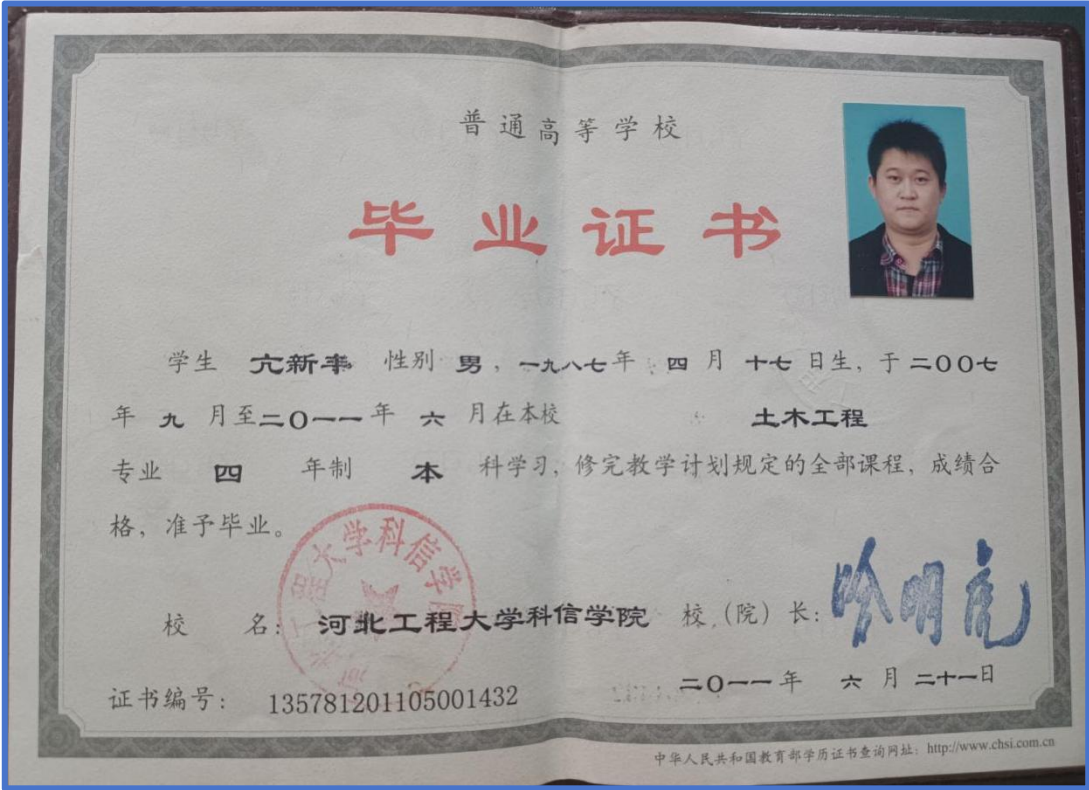 普通高等学校
毕业证书
学生 亢新丰 性别 男，一九八七年 四 月 十七 日生，于二〇〇七
年 九 月至二〇一一年 六 月在本校 土木工程
专业 四 年制 本 科学习，修完教学计划规定的全部课程，成绩合
格，准予毕业。
大学科信学
校 名：河北工程大学科信学院 校（院）长：哈明虎
二〇一一年 六 月二十一日
证书编号： 135781201105001432
中华人民共和国教育部学历证书查询网址：http://www.chsi.com.cn